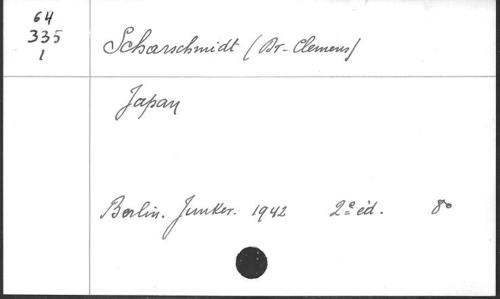 64
335
1
Scharschmidt (Dr-Clemens)
Japan
Berlin. Junker. 1942 2e éd. 8o